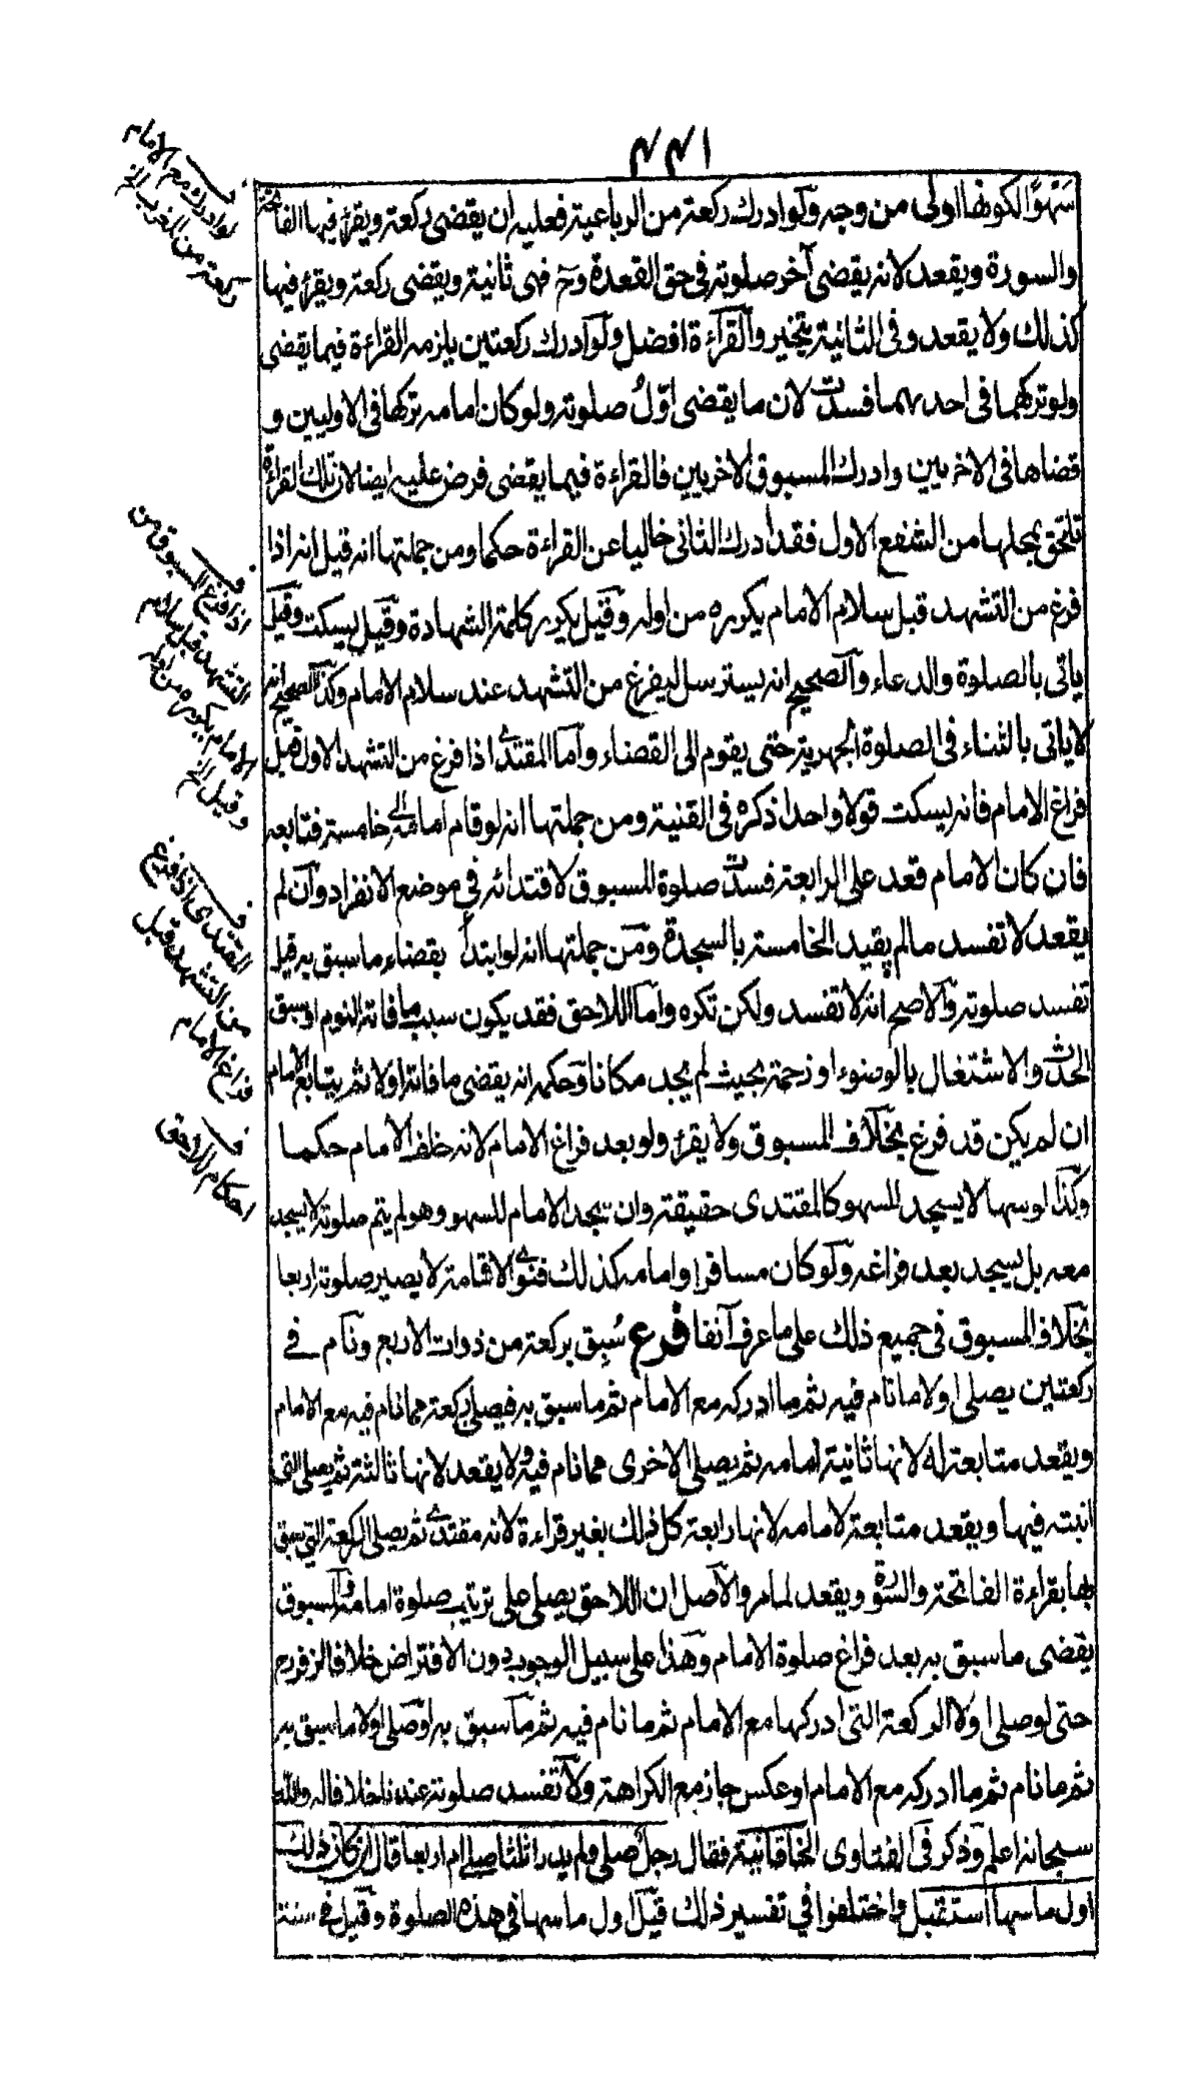 ۴۴۱
سَهْوًا لكونها اولى من وجه ولو ادرك ركعة من الرباعية فعليه ان يقضى ركعة ويقرأ فيها الفاتحة
والسورة ويقعد لانه يقضى آخر صلوته فى حق القعدة وح فهى ثانية ويقضى ركعة ويقرأ فيها
كذلك ولا يقعد وفى الثانية يتخير والقراءة افضل ولو ادرك ركعتين يلزمه القراءة فيما يقضى
ولو تركهما فى احدهما فسدت لان ما يقضى اوّلُ صلوته ولو كان امامه تركها فى الاوليين و
قضاها فى الاخريين وادرك المسبوق الاخريين فالقراءة فيما يقضى فرض عليه ايضا لان تلك القراءة
تلتحق بمحلها من الشفع الاول فقد ادرك الثانى خاليا عن القراءة حكما ومن جملتها انه قيل انه اذا
فرغ من التشهد قبل سلام الامام يكرره من اوله وقيل يكرر كلمة الشهادة وقيل يسكت وقيل
ياتى بالصلوة والدعاء والصحيح انه يسترسل ليفرغ من التشهد عند سلام الامام وكذا الصحيح انه
لا ياتى بالثناء فى الصلوة الجهرية حتى يقوم الى القضاء واما المقتدى اذا فرغ من التشهد الاول قبل
فراغ الامام فانه يسكت قولا واحدا ذكره فى القنية ومن جملتها انه لو قام امامه الى خامسة فتابعه
فان كان الامام قعد على الرابعة فسدت صلوة المسبوق لاقتدائه فى موضع الانفراد وان لم
يقعد لا تفسد ما لم يقيد الخامسة بالسجدة ومن جملتها انه لو ابتدأ بقضاء ما سبق به قيل
تفسد صلوته والاصح انه لا تفسد ولكن تكره واما اللاحق فقد يكون سبب ما فاته النوم او سبق
الحدث والاشتغال بالوضوء او زحمة بحيث لم يجد مكانا وحكمه انه يقضى ما فاته اولا ثم يتابع الامام
ان لم يكن قد فرغ بخلاف المسبوق ولا يقرأ ولو بعد فراغ الامام لانه خلف الامام حكما
وكذا لو سها لا يسجد للسهو كالمقتدى حقيقة وان سجد الامام للسهو وهو لم يتم صلوته لا يسجد
معه بل يسجد بعد فراغه ولو كان مسافرا وامامه كذلك فنوى الاقامة لا يصير صلوته اربعا
بخلاف المسبوق فى جميع ذلك على ما عرف آنفا فرع سُبِق بركعة من ذوات الاربع ونام فى
ركعتين يصلى اولا ما نام فيه ثم ما ادركه مع الامام ثم ما سبق به فيصلى ركعة مما نام فيه مع الامام
ويقعد متابعة له لانها ثانية امامه ثم يصلى الاخرى مما نام فيه ولا يقعد لانها ثالثة ثم يصلى التى
انتبه فيها ويقعد متابعة لامامه لانها رابعة كل ذلك بغير قراءة لانه مقتدى ثم يصلى الركعة التى سبق
بها بقراءة الفاتحة والسورة ويقعد لما مر والاصل ان اللاحق يصلى على ترتيب صلوة امامه والمسبوق
يقضى ما سبق به بعد فراغ صلوة الامام وهذا على سبيل الوجوب دون الافتراض خلافا لزفر رح
حتى لو صلى اولا الركعة التى ادركها مع الامام ثم ما نام فيه ثم ما سبق به او صلى اولا ما سبق به
ثم ما نام ثم ما ادركه مع الامام او عكس جاز مع الكراهة ولا تفسد صلوته عندنا خلافا له والله
سبحانه اعلم وذكر فى الفتاوى الخاقانية فقال رجل صلى ولم يدر اثلثا صلى ام اربعا قال ان كان ذلك
اول ما سها استقبل واختلفوا فى تفسير ذلك قيل اول ما سها فى هذه الصلوة وقيل فى سنته
ف
لو ادرك مع الامام
ركعة من المغرب الخ
ف
اذا فرغ المسبوق من
التشهد قبل سلام
الامام يكرره من اوله
وقيل الخ
ف
المقتدى اذا فرغ
من التشهد قبل
فراغ الامام
ف
احكام اللاحق